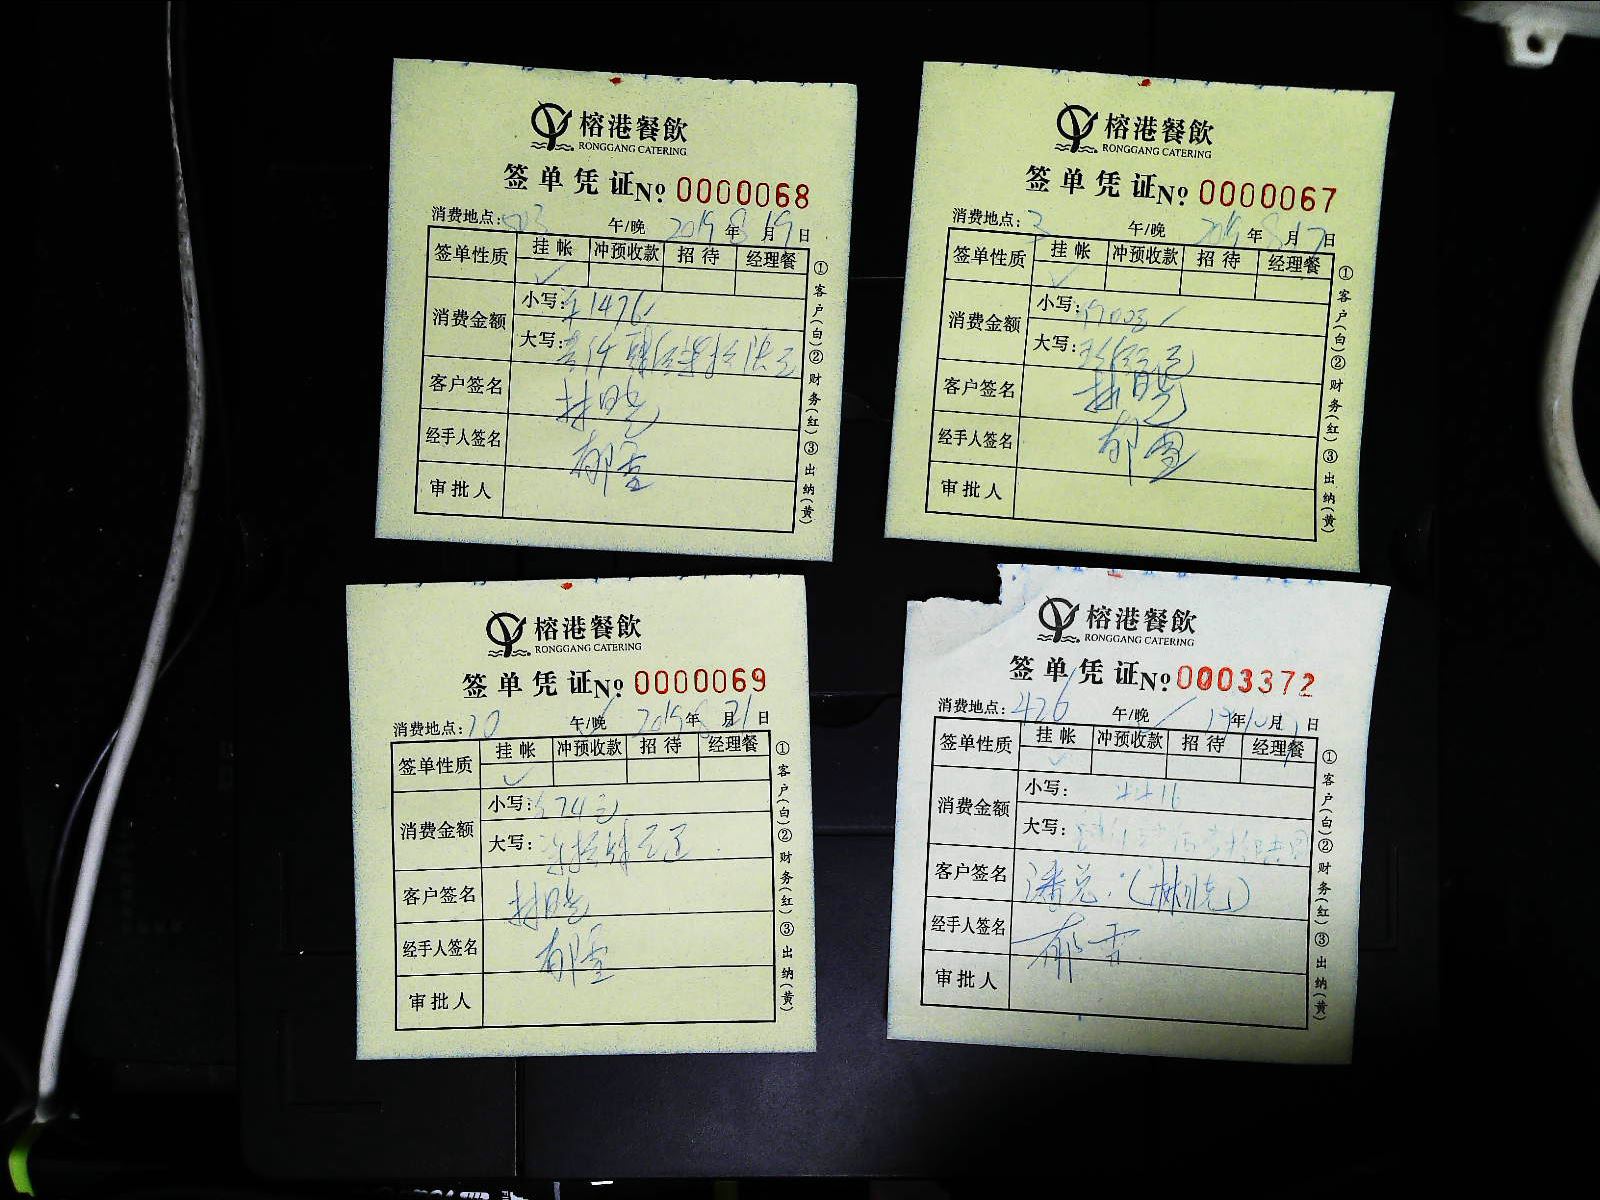 榕港餐飲
RONGGANG CATERING
签单凭证 No. 0000068
消费地点: 503 午/晚 2019年8月19日
签单性质 挂帐 冲预收款 招待 经理餐
✓
消费金额 小写: ¥1476/
大写:
客户签名 林晓
经手人签名 郁雪
审批人
①客户(白)②财务(红)③出纳(黄)
榕港餐飲
RONGGANG CATERING
签单凭证 No. 0000067
消费地点: 3 午/晚 2019年8月 日
签单性质 挂帐 冲预收款 招待 经理餐
✓
消费金额 小写:
大写:
客户签名 林晓
经手人签名 郁雪
审批人
①客户(白)②财务(红)③出纳(黄)
榕港餐飲
RONGGANG CATERING
签单凭证 No. 0000069
消费地点: 午/晚 2019年8月21日
签单性质 挂帐 冲预收款 招待 经理餐
✓
消费金额 小写: 674元
大写:
客户签名 林晓
经手人签名 郁雪
审批人
①客户(白)②财务(红)③出纳(黄)
榕港餐飲
RONGGANG CATERING
签单凭证 No. 0003372
消费地点: 426 午/晚 19年10月 日
签单性质 挂帐 冲预收款 招待 经理餐
✓
消费金额 小写:
大写:
客户签名 潘总(林晓)
经手人签名 郁雪
审批人
①客户(白)②财务(红)③出纳(黄)